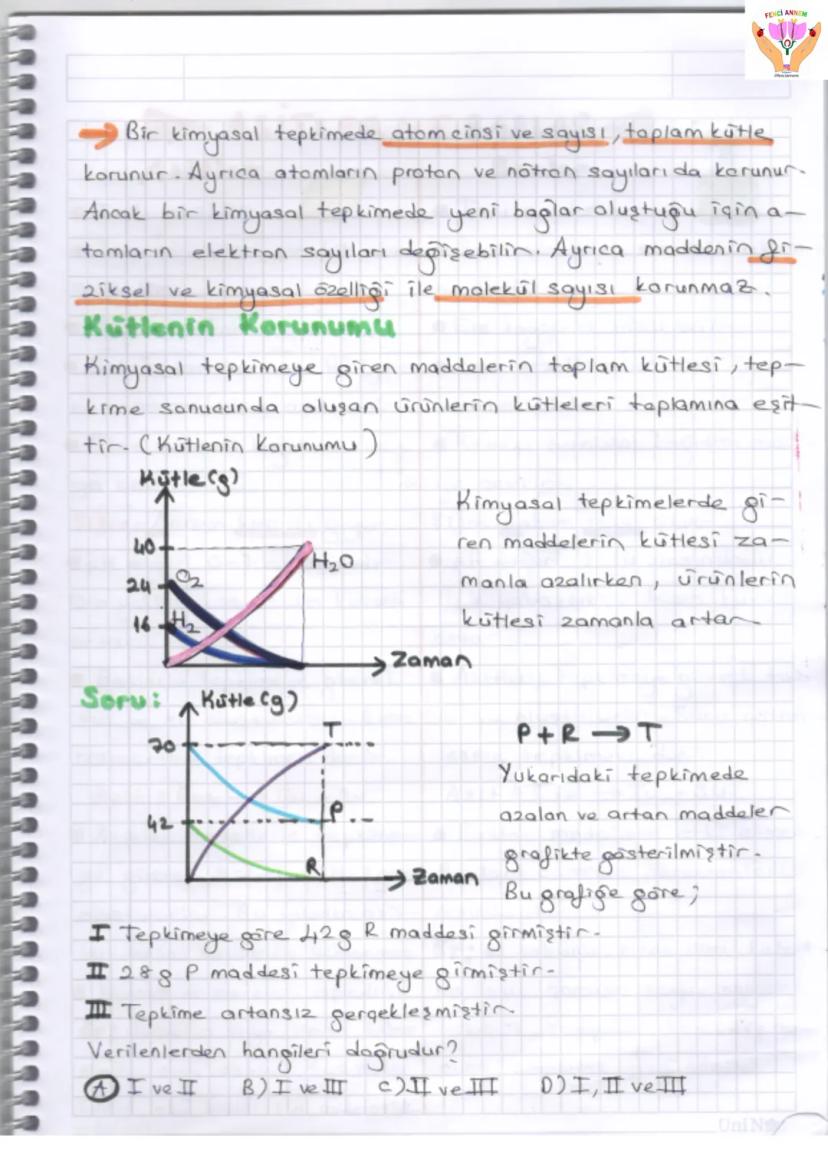 FENCİ ANNEM
→ Bir kimyasal tepkimede atom cinsi ve sayısı, toplam kütle
korunur. Ayrıca atomların proton ve nötron sayıları da korunur.
Ancak bir kimyasal tepkimede yeni bağlar oluştuğu için a-
tomların elektron sayıları değişebilir. Ayrıca maddenin fi-
ziksel ve kimyasal özelliği ile molekül sayısı korunmaz.
Kütlenin Korunumu
Kimyasal tepkimeye giren maddelerin toplam kütlesi, tep-
kime sonucunda oluşan ürünlerin kütleleri toplamına eşit-
tir. (Kütlenin Korunumu)
Kütle (g)
40
24
16
O2
H2
H2O
Zaman
Kimyasal tepkimelerde gi-
ren maddelerin kütlesi za-
manla azalırken, ürünlerin
kütlesi zamanla artar
Soru:
Kütle (g)
70
42
T
P
R
Zaman
P + R → T
Yukarıdaki tepkimede
azalan ve artan maddeler
grafikte gösterilmiştir.
Bu grafiğe göre;
I Tepkimeye göre 42 g R maddesi girmiştir.
II 28 g P maddesi tepkimeye girmiştir.
III Tepkime artansız gerçekleşmiştir.
Verilenlerden hangileri doğrudur?
A) I ve II B) I ve III C) II ve III D) I, II ve III